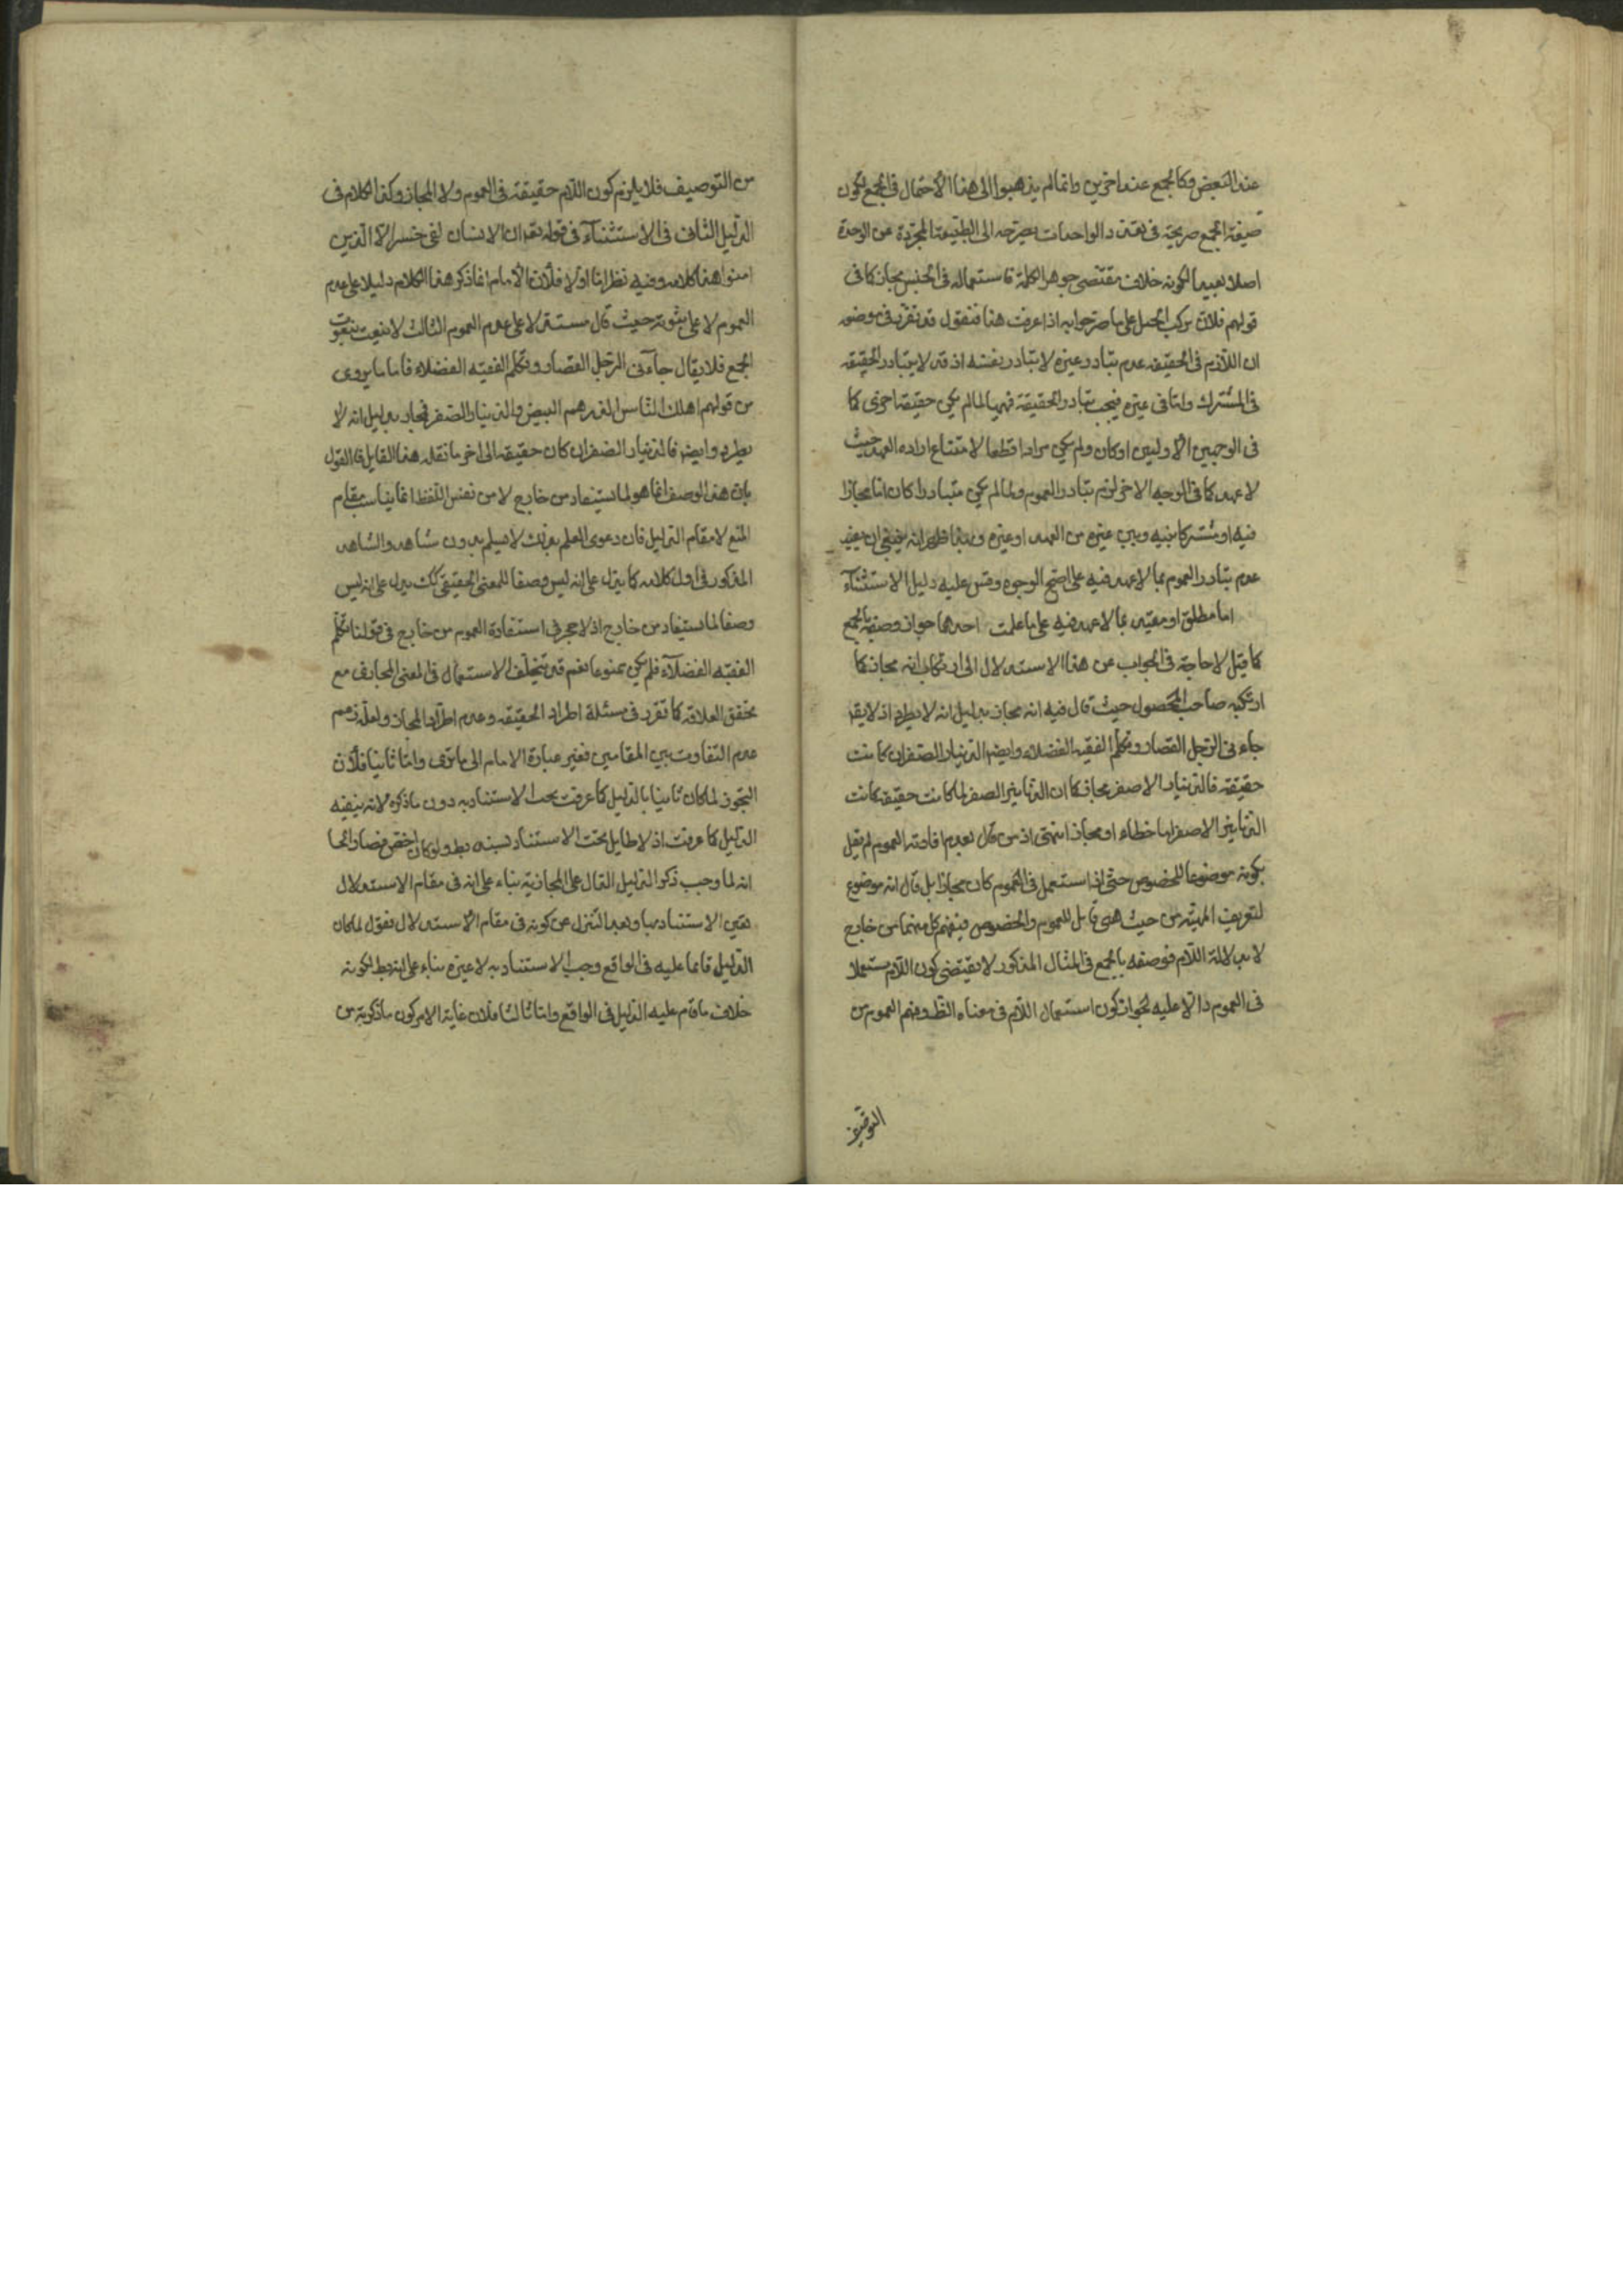 عند البعض وكالجمع عند اخرين وانما لم يذهبوا الى هذا الاحتمال فى الجمع لكون
صيغة الجمع صريحة فى تعدد الواحدات فصرفه الى الطبيعة المجردة عن الوحدة
اصلا بعيد لكونه خلاف مقتضى جوهر الكلمة فاستعماله فى الجنس مجاز كما فى
قولهم فلان يركب الخيل على ما صرحوا به اذا عرفت هذا فنقول قد تقرر فى موضعه
ان اللازم فى الحقيقة عدم تبادر غيره لا تبادر نفسه اذ قد لا يتبادر الحقيقة
فى المشترك واما فى غيره فيجب تبادر الحقيقة فهيهنا لما لم يكن حقيقة اخرى كما
فى الوجهين الاولين او كان ولم يكن مرادا قطعا لامتناع اراده العهد حيث
لا عهد كما فى الوجه الاخر لزم تبادر العموم ولما لم يكن متبادرا كان اما مجازا
فيه او مشتركا بينه وبين غيره من العهد او غيره وبهذا ظهر انه ينبغى ان يقيد
عدم تبادر العموم بما لا عهد فيه على اصح الوجوه وقس عليه دليل الاستثناء
اما مطلق او مقيد بما لا عهد فيه على ما علمت احدها جواز وصفه بالجمع
كما قيل لا حاجة فى الجواب عن هذا الاستدلال الى ارتكاب انه مجاز كما
ارتكبه صاحب المحصول حيث قال فيه انه مجاز بدليل انه لا يطرد اذ لا يقد
جاءنى الرجل القصار وتكلم الفقيه الفضلاء وايضا الدينار الصفر ان كانت
حقيقة فالدينار الاصفر مجاز كما ان الدنانير الصفر لما كانت حقيقة كانت
الدنانير الاصفر اما خطاء او مجاز انتهى اذ من قال بعدم افادته العموم لم يقل
بكونه موضوعا للخصوص حتى اذا استعمل فى العموم كان مجازا بل قال انه موضوع
لتعريف المهية من حيث هى قابل للعموم والخصوص فيفهم كل منهما من خارج
لا بدلالة اللام فوصفه بالجمع فى المثال المذكور لا يقتضى كون اللام مستعملا
فى العموم دالا عليه لجواز كون استعمال اللام فى معناه الظ وفهم العموم من
التوصيف
من التوصيف فلا يلزم كون اللام حقيقة فى العموم ولا المجاز وكذا الكلام فى
الدليل الثانى فى الاستثناء فى قوله تعد ان الانسان لفى خسر الا الذين
امنوا هذا كلامه وفيه نظر اما اولا فلأن الامام انما ذكر هذا الكلام دليلا على عدم
العموم لا على ثبوته حيث قال مستدلا على عدم العموم الثالث لا ينعت بنعوت
الجمع فلا يقال جاءنى الرجل القصار وتكلم الفقيه الفضلاء فاما ما يروى
من قولهم اهلك الناس الدرهم البيض والدينار الصفر فمجاز بدليل انه لا
يطرد وايضا فالدينار الصفر ان كان حقيقة الى اخر ما نقله هذا القايل فالقول
بان هذا الوصف انما هو لما يستفاد من خارج لا من نفس اللفظ انما يناسب مقام
المنع لا مقام الدليل فان دعوى العلم بذلك لا يسلم بدون شاهد والشاهد
المذكور فى اول كلامه كما يدل على انه ليس وصفا للمعنى الحقيقى كك يدل على انه ليس
وصفا لما يستفاد من خارج اذ لا حجر فى استفادة العموم من خارج فى قولنا تكلم
الفقيه الفضلاء فلم يكن ممنوعا نعم قد يتخلف الاستعمال فى المعنى المجازى مع
تحقق العلاقة كما تقرر فى مسئلة اطراد الحقيقة وعدم اطراد المجاز ولعله زعم
عدم التفاوت بين المقامين فغير عبارة الامام الى ما ترى واما ثانيا فلأن
التجوز لما كان ثابتا بالدليل كما عرفت بحث الاستناد به دون ما ذكره لانه ينفيه
الدليل كما عرفت اذ لا طايل تحت الاستناد بسند
انه لما وجب ذكر الدليل الدال على المجازية بناء على انه فى مقام الاستدلال
تعين الاستناد بها وبعد التنزل عن كونه فى مقام الاستدلال نقول لما كان
الدليل قائما عليه فى الواقع وجب الاستناد به لا غيره بناء على انه بط لكونه
خلاف ما قام عليه الدليل فى الواقع واما ثالثا فلان غاية الامر كون ما ذكره من